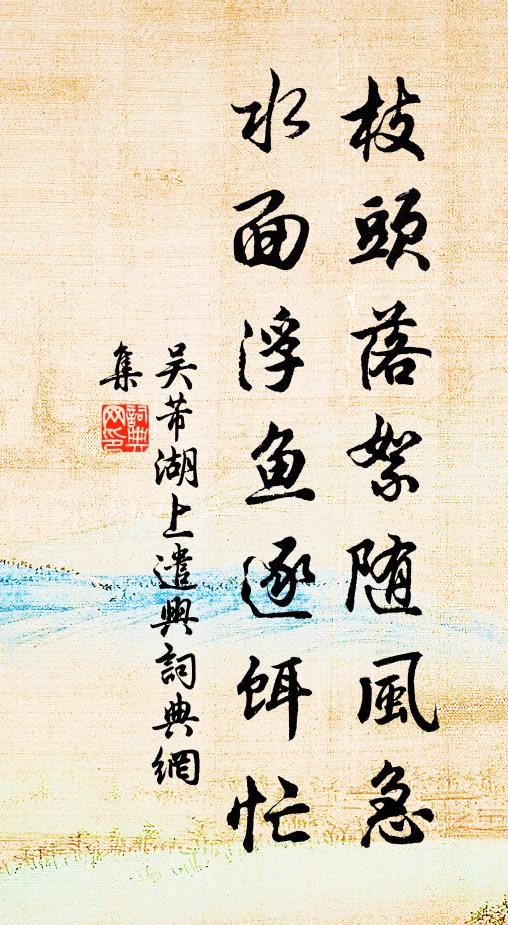 枝頭落絮随風急
水面浮魚逐餌忙
吴芾湖上遣興詞典網
集
詞典網印